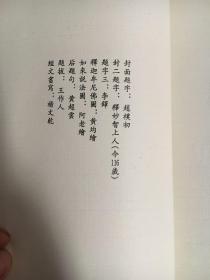 封面題字：趙樸初
封二題字：釋妙智上人(今116歲)
題字三：李鐸
釋迦牟尼佛圖：黃均繪
如來說法圖：阿老繪
后題句：黃超雲
題拔：王作人
經文書寫：楊文乾